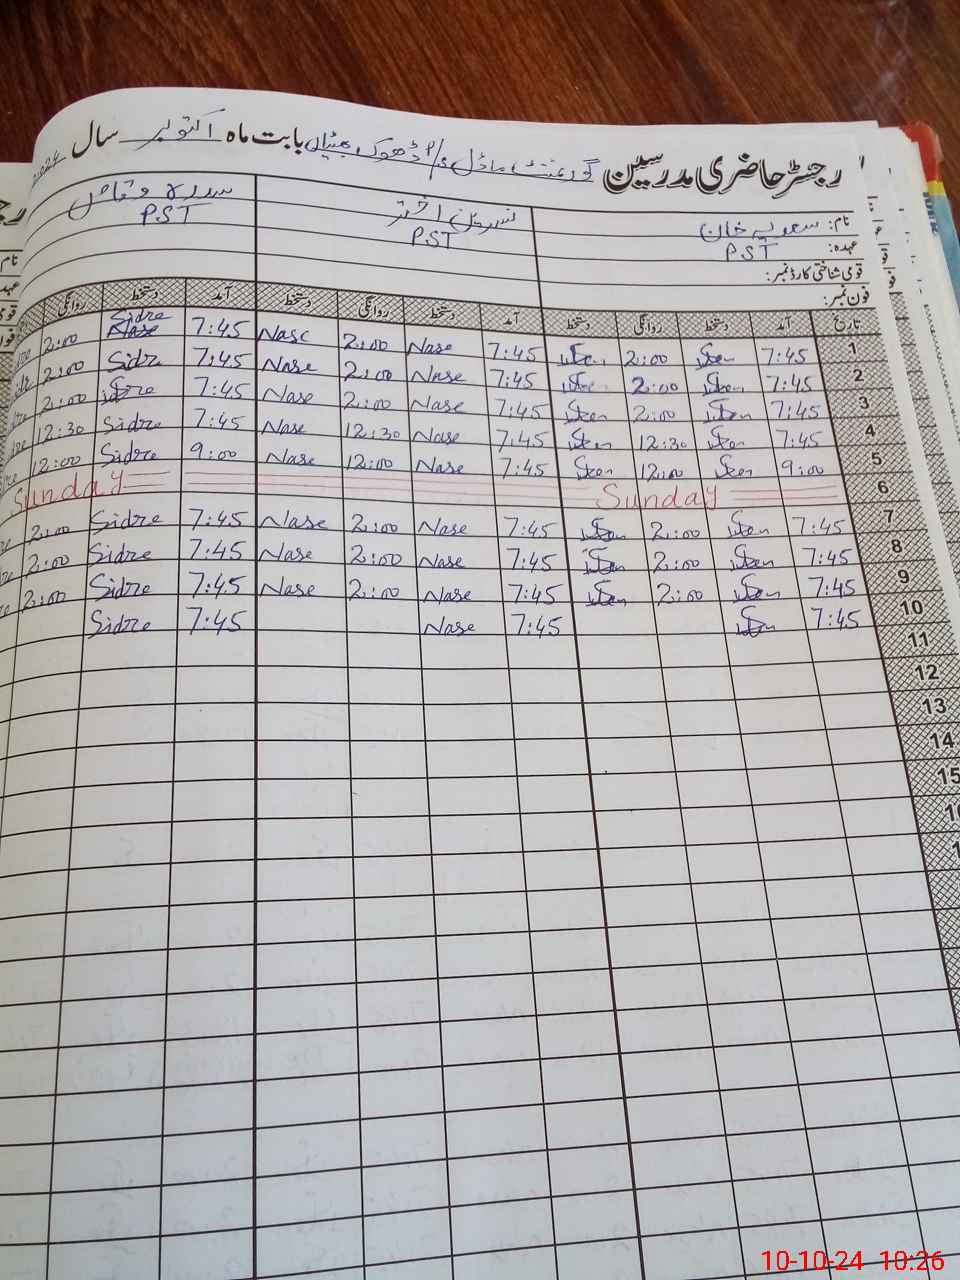 رجسٹر حاضری مدرسین گورنمنٹ ماڈل ڈھوک بابت ماہ اکتوبر سال 2024
نام: سعدیہ خان نسرین اختر سدرہ وقاص
عہدہ: PST PST PST
قومی شناختی کارڈ نمبر:
فون نمبر:
تاریخ آمد دستخط روانگی دستخط آمد دستخط روانگی دستخط آمد دستخط روانگی
1 7:45 2:00 7:45 Nase 2:00 Nase 7:45 Sidre 2:00
2 7:45 2:00 7:45 Nase 2:00 Nase 7:45 Sidre 2:00
3 7:45 2:00 7:45 Nase 2:00 Nase 7:45 Sidre 2:00
4 7:45 12:30 7:45 Nase 12:30 Nase 7:45 Sidre 12:30
5 9:00 12:00 7:45 Nase 12:00 Nase 9:00 Sidre 12:00
6 Sunday Sunday
7 7:45 2:00 7:45 Nase 2:00 Nase 7:45 Sidre 2:00
8 7:45 2:00 7:45 Nase 2:00 Nase 7:45 Sidre 2:00
9 7:45 2:00 7:45 Nase 2:00 Nase 7:45 Sidre 2:00
10 7:45 7:45 Nase 7:45 Sidre
11
12
13
14
15
10-10-24 10:26